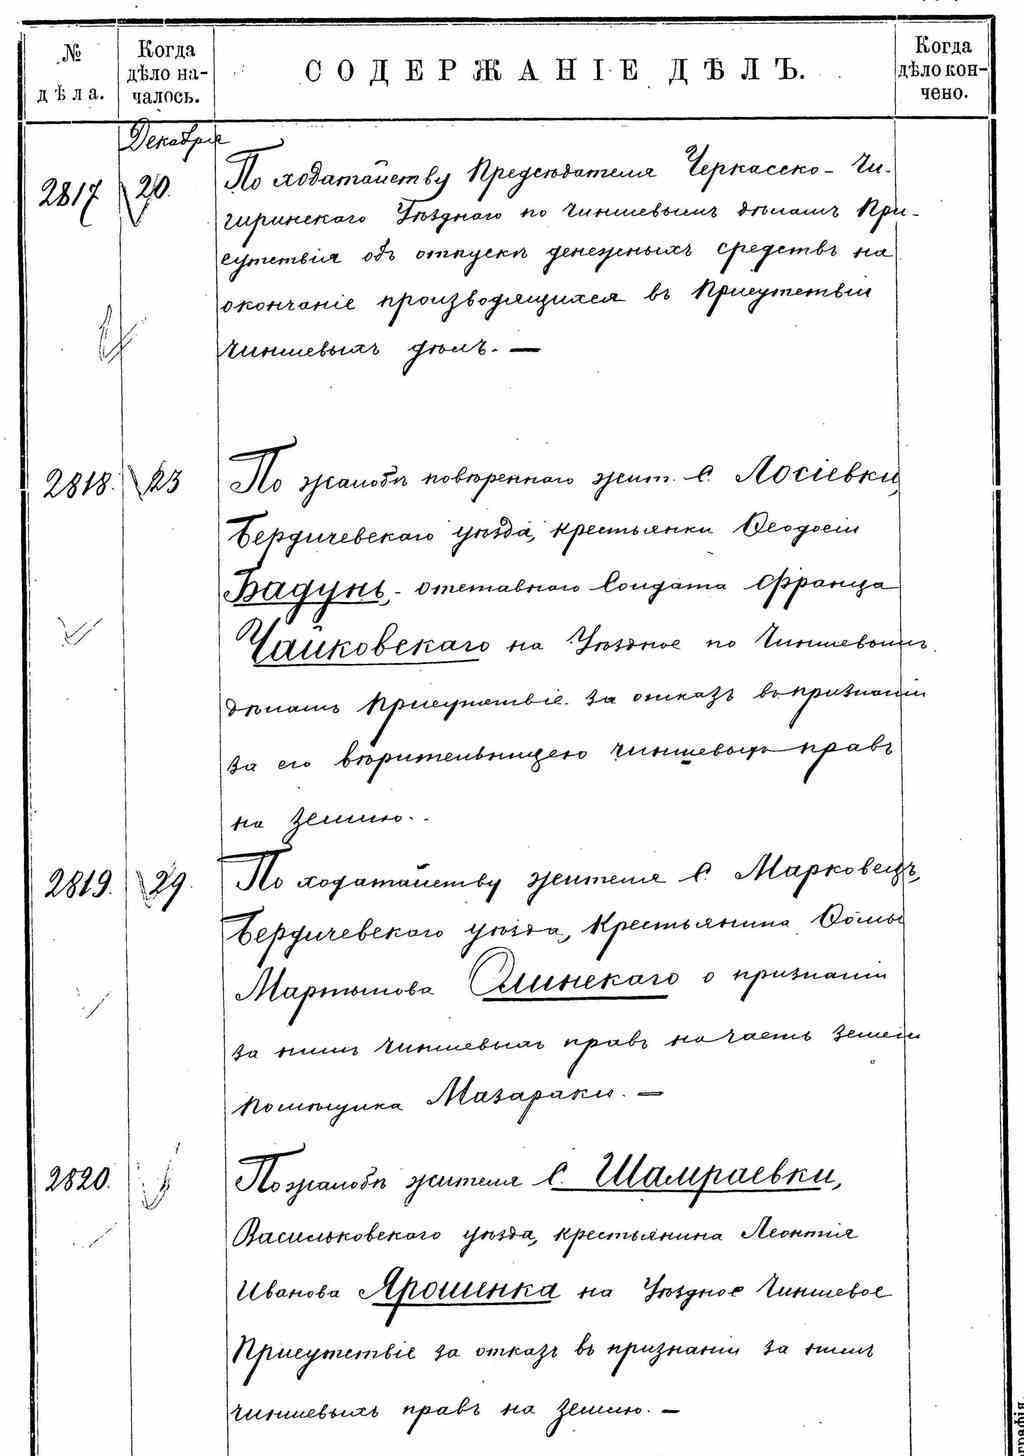 № дѣла.
Когда дѣло началось.
СОДЕРЖАНІЕ ДѢЛЪ.
Когда дѣло кончено.
Декабря
2817 20. По ходатайству Предсѣдателя Черкасско-Чи-
гиринскаго Уѣзднаго по чиншевымъ дѣламъ При-
сутствія объ отпускѣ денежныхъ средствъ на
окончаніе производящихся въ Присутствіи
чиншевыхъ дѣлъ. —
2818. 23 По жалобѣ повѣреннаго жит. с. Лосіевки,
Бердичевскаго уѣзда, крестьянки Ѳеодосіи
Бадунь, - отставнаго Солдата Франца
Чайковскаго на Уѣздное по Чиншевымъ
дѣламъ Присутствіе за отказъ въ признаніи
за его вѣрительницею чиншевыхъ правъ
на землю..
2819. 29. По ходатайству жителя с. Марковецъ,
Бердичевскаго уѣзда, Крестьянина Ѳомы
Мартынова Олинскаго о признаніи
за нимъ чиншевыхъ правъ на часть земли
помѣщика Мазараки. —
2820. По жалобѣ жителя с. Шамраевки,
Васильковскаго уѣзда, крестьянина Леонтія
Иванова Ярошенка на Уѣздное Чиншевое
Присутствіе за отказъ въ признаніи за нимъ
чиншевыхъ правъ на землю. —